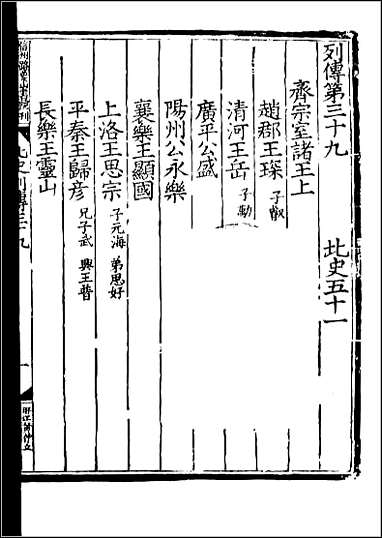 列傳第三十九 北史五十一
齊宗室諸王上
趙郡王琛 子叡
清河王岳 子勱
廣平公盛
陽州公永樂
襄樂王顯國
上洛王思宗 子元海 弟思好
平秦王歸彥 兄子武 興王普
長樂王靈山
北史列傳三十九
一